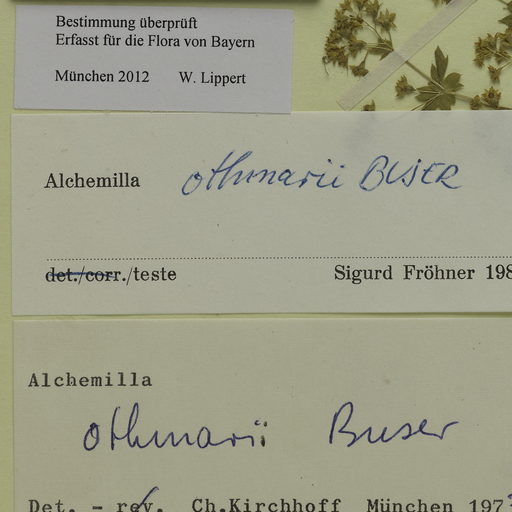 Bestimmung überprüft
Erfasst für die Flora von Bayern
München 2012 W. Lippert
Alchemilla othmarii BUSER
det./corr./teste Sigurd Fröhner 198
Alchemilla
othmarii Buser
Det. - rev. Ch.Kirchhoff München 197